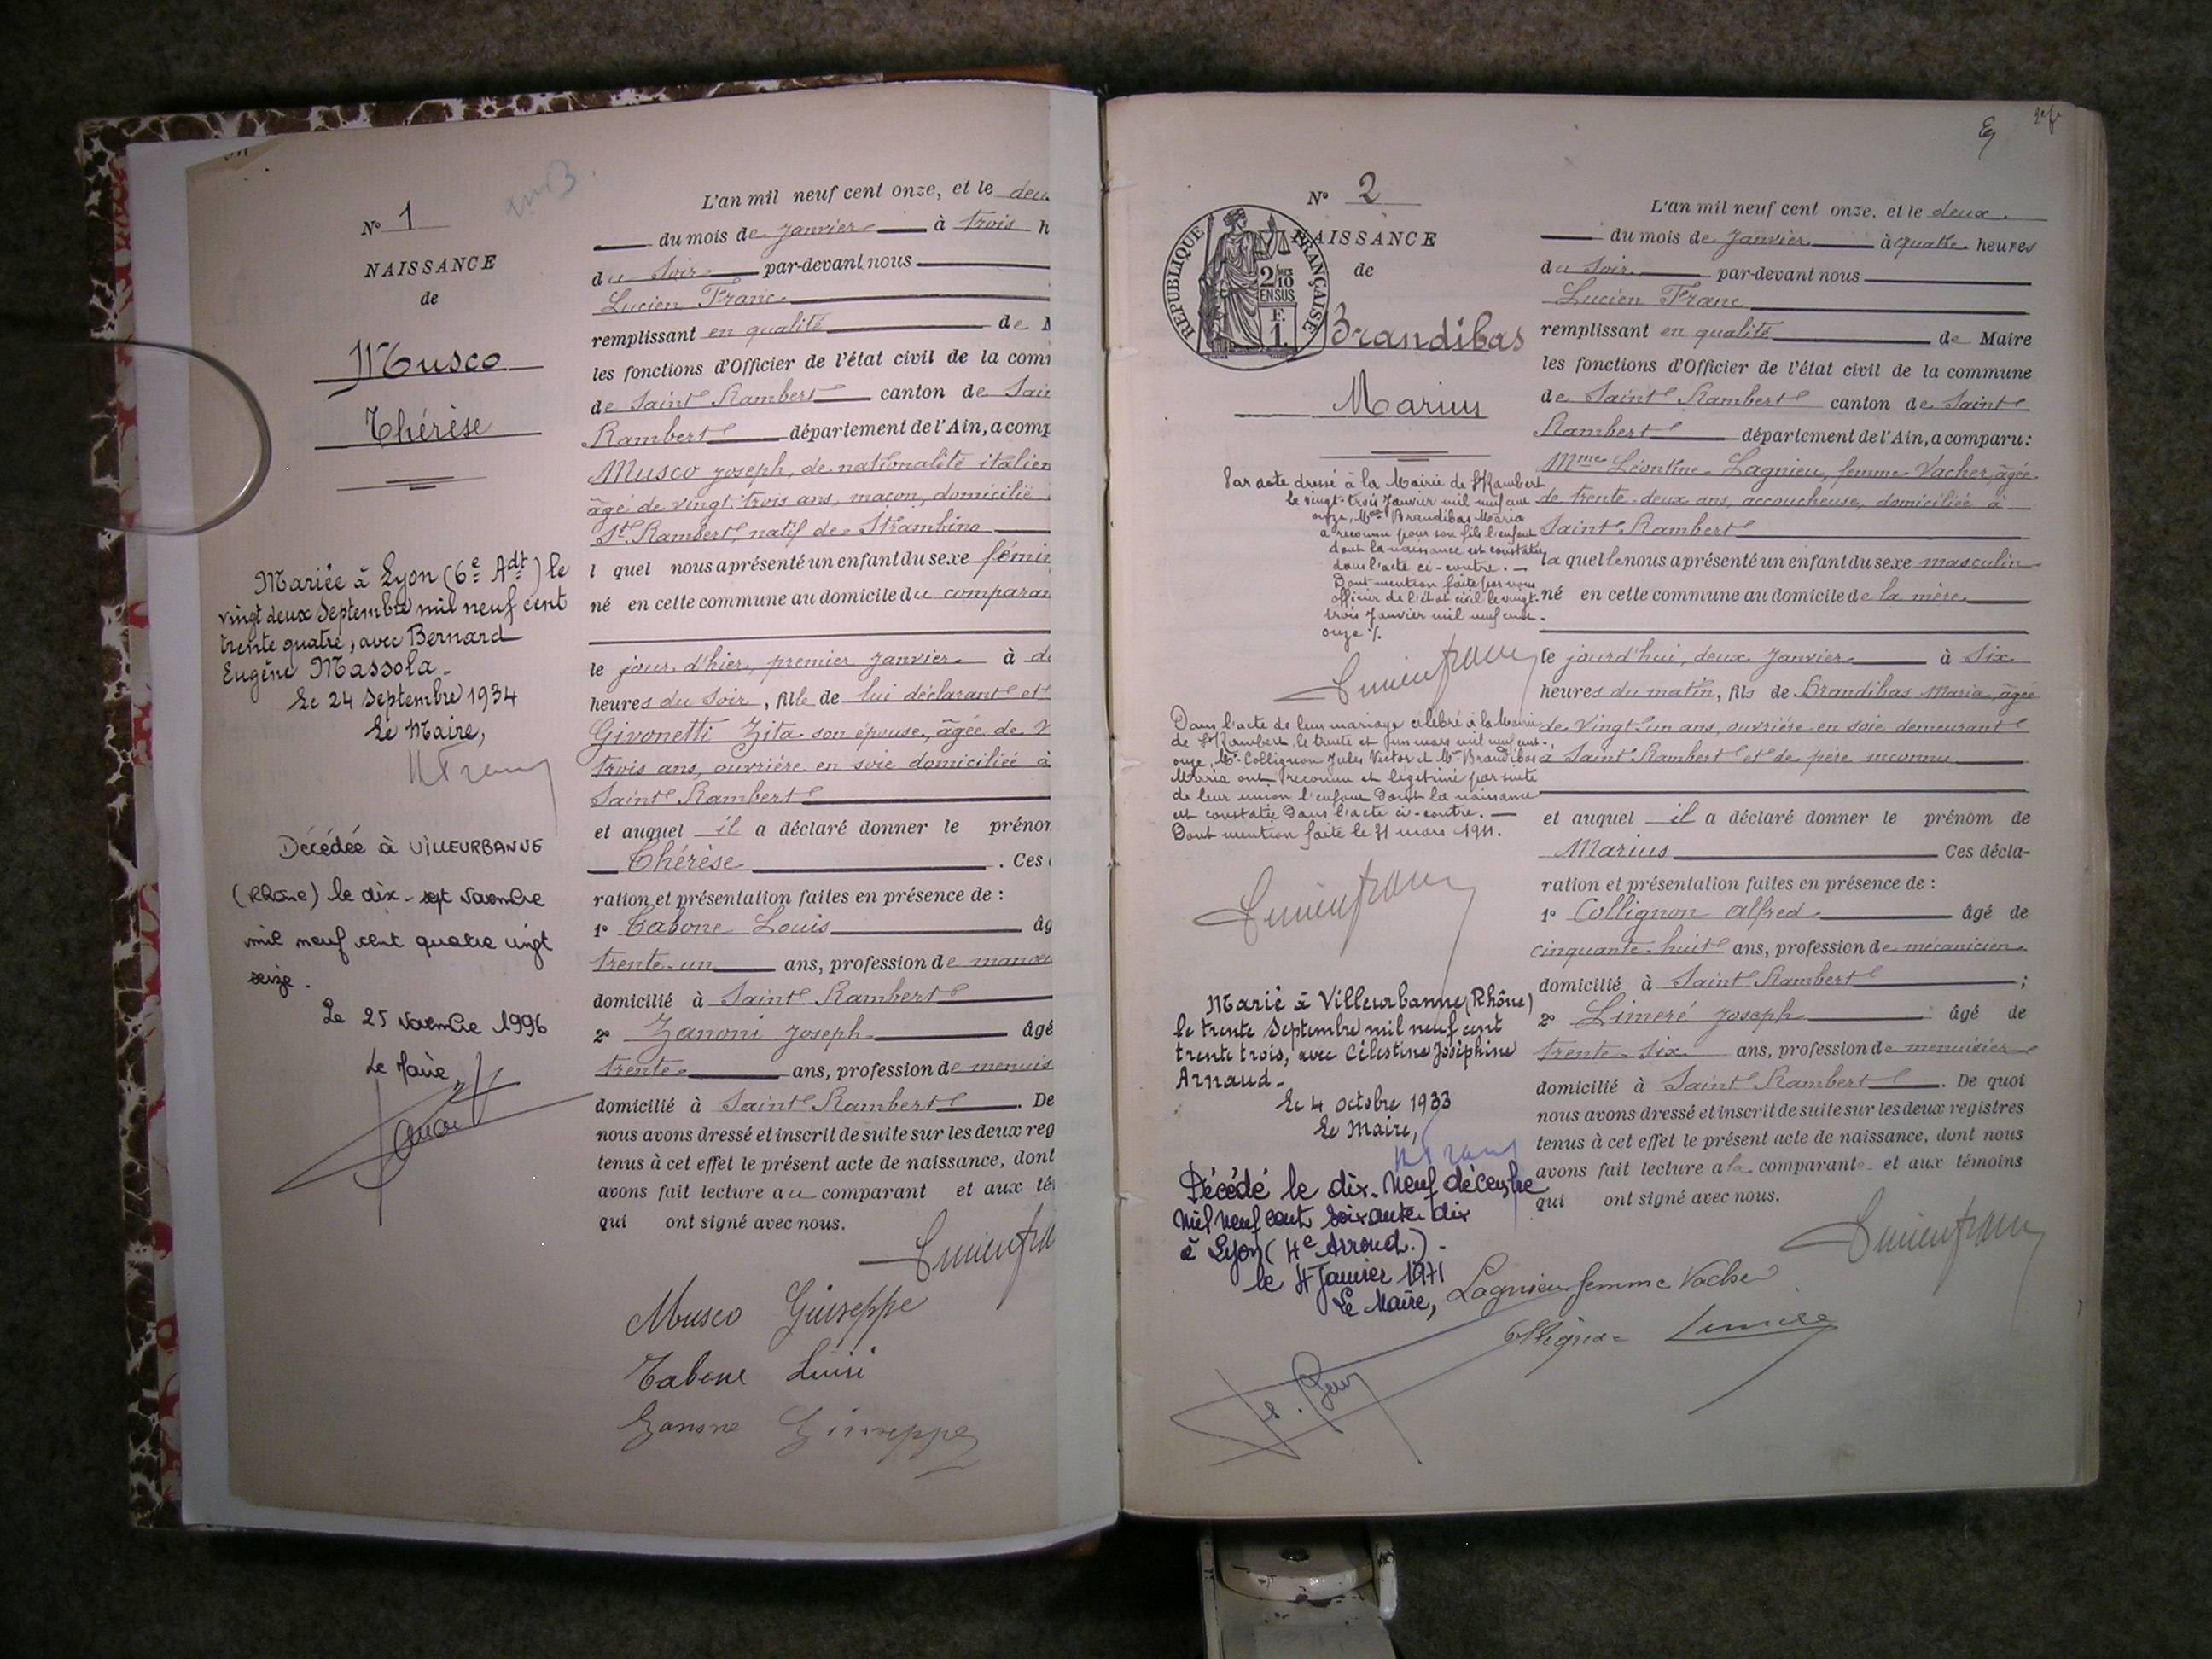 N° 1
NAISSANCE
de
Musco
Thérèse
Mariée à Lyon (6e Adt) le
vingt deux Septembre mil neuf cent
trente quatre, avec Bernard
Eugène Massola.
Le 24 Septembre 1934
Le Maire,
Décédée à VILLEURBANNE
(Rhône) le dix-sept Novembre
mil neuf cent quatre vingt
seize.
Le 25 Novembre 1996
Le Maire
L'an mil neuf cent onze, et le deu
du mois de Janvier à trois h
du soir par-devant nous
Lucien Franc
remplissant en qualité de M
les fonctions d'Officier de l'état civil de la com
de Saint Rambert canton de Sai
Rambert département de l'Ain, a comp
Musco Joseph, de nationalité italien
âgé de vingt trois ans, maçon, domicilié
St Rambert, natif de Strambino
l quel nous a présenté un enfant du sexe fémin
né en cette commune au domicile du comparan
le jour d'hier, premier Janvier à d
heures du soir, fille de lui déclarant et
Givonetti Zita son épouse, âgée de v
trois ans, ouvrière en soie domiciliée à
Saint Rambert
et auquel il a déclaré donner le prénom
Thérèse . Ces
ration et présentation faites en présence de :
1° Tabone Louis âg
trente-un ans, profession de manœu
domicilié à Saint Rambert
2° Zanoni Joseph âgé
trente ans, profession de menuis
domicilié à Saint Rambert . De
nous avons dressé et inscrit de suite sur les deux reg
tenus à cet effet le présent acte de naissance, dont
avons fait lecture au comparant et aux té
qui ont signé avec nous.
Musco Giuseppe
Tabone Luigi
Zanone Giuseppe
N° 2
NAISSANCE
de
RÉPUBLIQUE FRANÇAISE
2/10
EN SUS
F.
1.
Brandibas
Marius
Par acte dressé à la Mairie de St Rambert
le vingt-trois Janvier mil neuf cent
onze, Mlle Brandibas Maria
a reconnu pour son fils l'enfant
dont la naissance est constatée
dans l'acte ci-contre. —
Dont mention faite par nous
officier de l'état civil le vingt-
trois Janvier mil neuf cent-
onze ./.
Lucien Franc
Dans l'acte de leur mariage célébré à la Mairie
de St Rambert le trente et un mars mil neuf cent-
onze, Mr Collignon Jules Victor et Mlle Brandibas
Maria ont reconnu et légitimé par suite
de leur union l'enfant dont la naissance
est constatée dans l'acte ci-contre. —
Dont mention faite le 31 mars 1911.
Lucien Franc
Marié à Villeurbanne (Rhône)
le trente Septembre mil neuf cent
trente trois, avec Célestine Joséphine
Arnaud.
Le 4 octobre 1933
Le Maire,
Décédé le dix-neuf décembre
mil neuf cent soixante dix
à Lyon (4e Arrond.).
le 4 Janvier 1971
Le Maire,
L'an mil neuf cent onze, et le deux
du mois de Janvier à quatre heures
du soir par-devant nous
Lucien Franc
remplissant en qualité de Maire
les fonctions d'Officier de l'état civil de la commune
de Saint Rambert canton de Saint
Rambert département de l'Ain, a comparu :
Mme Léontine Lagnieu, femme Vacher, âgée
de trente-deux ans, accoucheuse, domiciliée à
Saint Rambert
la quelle nous a présenté un enfant du sexe masculin
né en cette commune au domicile de la mère
le jourd'hui, deux Janvier à six
heures du matin, fils de Brandibas Maria, âgée
de vingt-un ans, ouvrière en soie demeurant
à Saint Rambert et de père inconnu
et auquel il a déclaré donner le prénom de
Marius Ces décla-
ration et présentation faites en présence de :
1° Collignon Alfred âgé de
cinquante-huit ans, profession de mécanicien
domicilié à Saint Rambert ;
2° Limeré Joseph âgé de
trente-six ans, profession de menuisier
domicilié à Saint Rambert . De quoi
nous avons dressé et inscrit de suite sur les deux registres
tenus à cet effet le présent acte de naissance, dont nous
avons fait lecture a la comparante et aux témoins
qui ont signé avec nous.
Lucien Franc
Lagnieu femme Vacher
Collignon Limeré